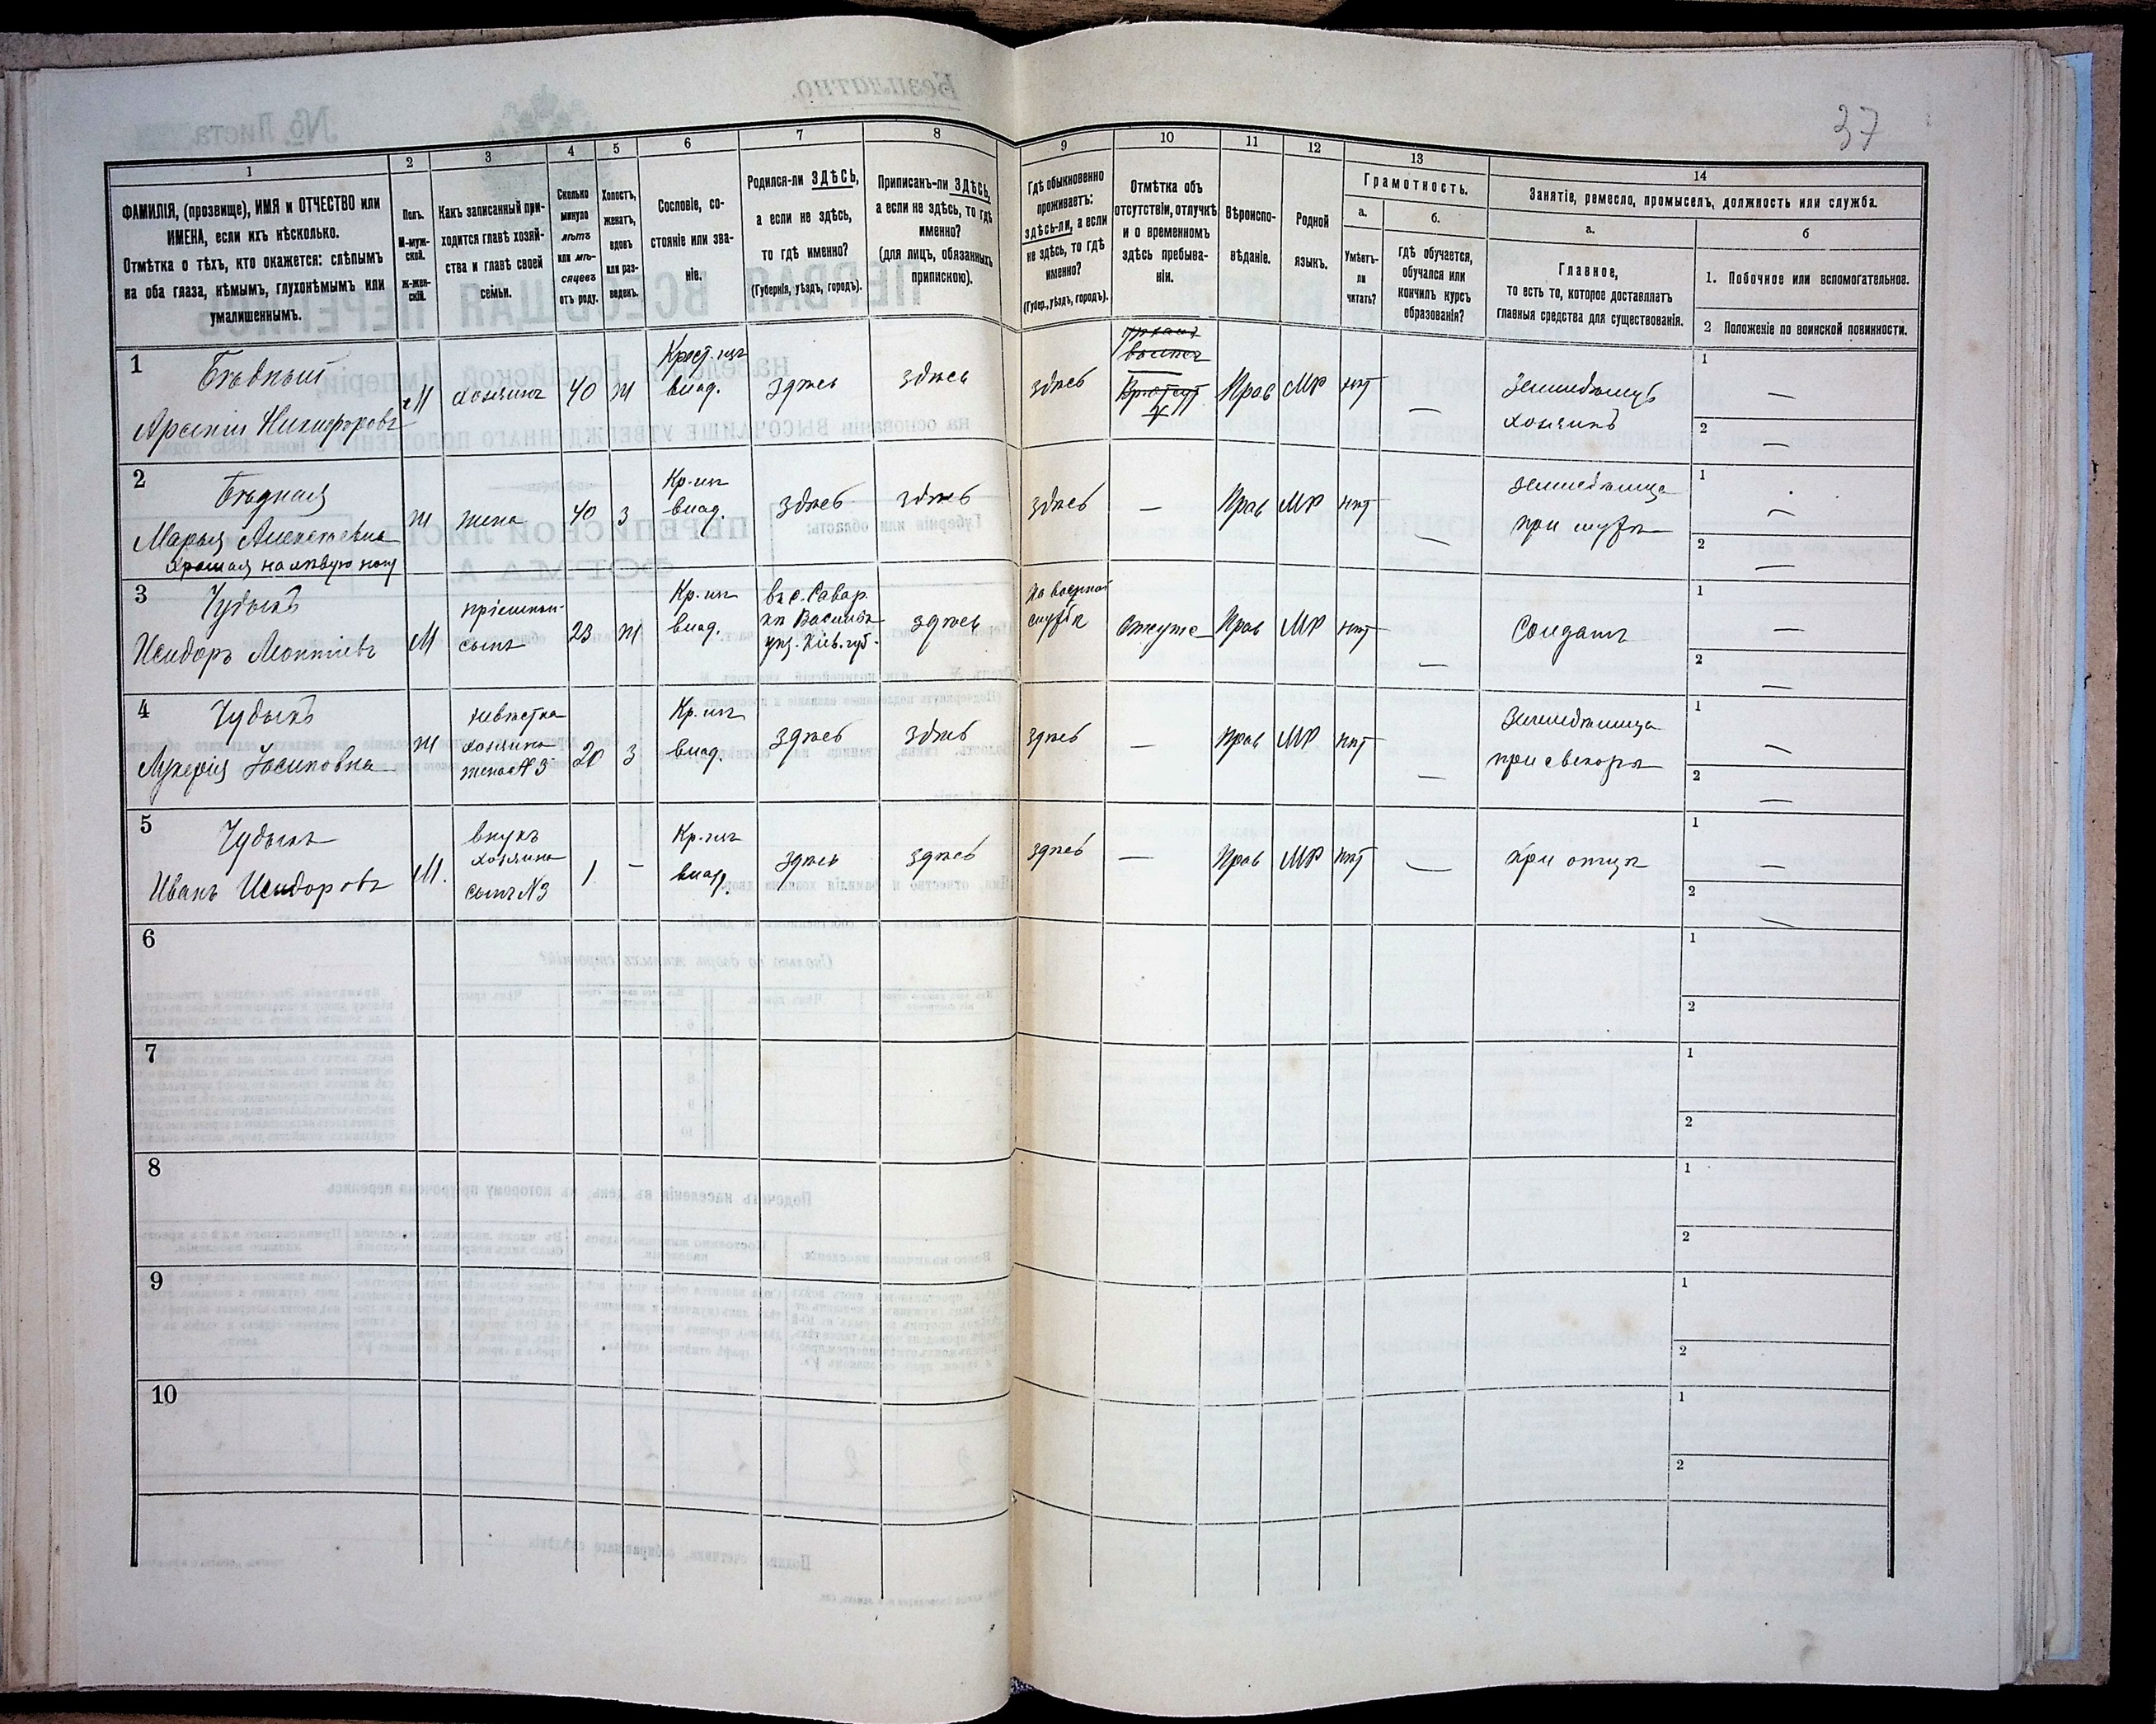 37
1
2
3
4
5
6
7
8
9
10
11
12
13
14
ФАМИЛІЯ, (прозвище), ИМЯ и ОТЧЕСТВО или
ИМЕНА, если ихъ нѣсколько.
Отмѣтка о тѣхъ, кто окажется: слѣпымъ
на оба глаза, нѣмымъ, глухонѣмымъ или
умалишеннымъ.
Полъ.
М-муж-
ской.
Ж-жен-
скій.
Какъ записанный при-
ходится главѣ хозяй-
ства и главѣ своей
семьи.
Сколько
минуло
лѣтъ
или мѣ-
сяцевъ
отъ роду.
Холостъ,
женатъ,
вдовъ
или раз-
веденъ.
Сословіе, со-
стояніе или зва-
ніе.
Родился-ли ЗДѢСЬ,
а если не здѣсь,
то гдѣ именно?
(Губернія, уѣздъ, городъ).
Приписанъ-ли ЗДѢСЬ,
а если не здѣсь, то гдѣ
именно?
(для лицъ, обязанныхъ
припискою).
Гдѣ обыкновенно
проживаетъ:
здѣсь-ли, а если
не здѣсь, то гдѣ
именно?
(Губер., уѣздъ, городъ).
Отмѣтка объ
отсутствіи, отлучкѣ
и о временномъ
здѣсь пребыва-
ніи.
Вѣроиспо-
вѣданіе.
Родной
языкъ.
Грамотность.
а.
Умѣетъ-
ли
читать?
б.
гдѣ обучается,
обучался или
кончилъ курсъ
образованія?
Занятіе, ремесло, промыселъ, должность или служба.
а.
Главное,
то есть то, которое доставляетъ
главныя средства для существованія.
б
1. Побочное или вспомогательное.
2 Положеніе по воинской повинности.
1
Бѣдный
Арсеній Никифоровъ
М
хозяинъ
40
ж
Крест. изъ
влад.
здѣсь
здѣсь
здѣсь
Прав
МР
нѣт
—
Земледѣлецъ
хозяинъ
1
—
2
—
2
Бѣдная
Марья Алексѣевна
хромая на лѣвую ногу
ж
жена
40
з
Кр. изъ
влад.
здѣсь
здѣсь
здѣсь
—
Прав
МР
нѣт
—
земледѣлица
при мужѣ
1
—
2
—
3
Чудыкъ
Исидоръ Леонтіевъ
М
пріемный
сынъ
23
ж
Кр. изъ
влад.
въ с. Савар
кѣ Васильк
уѣз. Кіев. губ.
здѣсь
На военной
службѣ
Прав
МР
нѣт
—
Солдатъ
1
—
2
—
4
Чудыкъ
Лукерія Іосиповна
ж
невѣстка
хозяина
жена № 3
20
з
Кр. изъ
влад.
здѣсь
здѣсь
здѣсь
—
Прав
МР
нѣт
—
Земледѣлица
при свекорѣ
1
—
2
—
5
Чудыкъ
Иванъ Исидоровъ
М.
внукъ
хозяина
сынъ № 3
1
—
Кр. изъ
влад.
здѣсь
здѣсь
здѣсь
—
Прав
МР
нѣт
—
при отцѣ
1
—
2
—
6
1
2
7
1
2
8
1
2
9
1
2
10
1
2